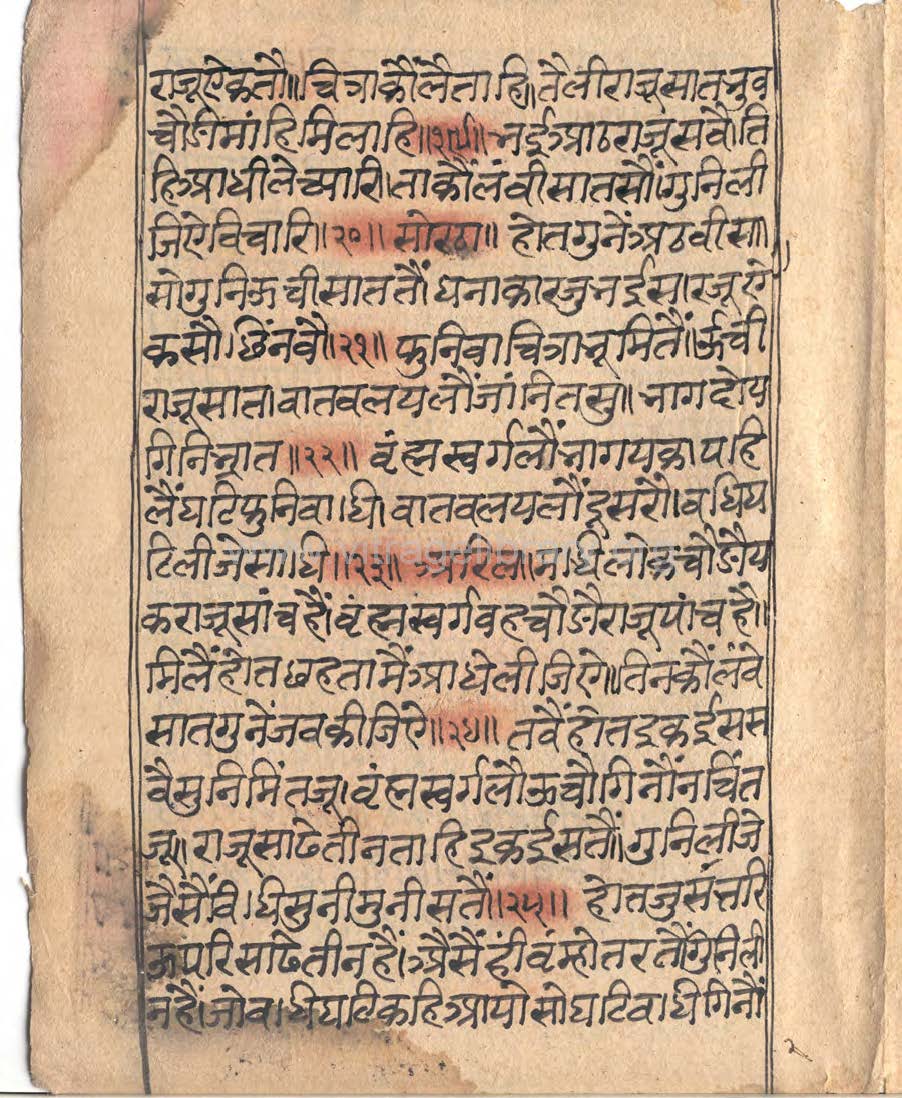 राजू ऐकतौ॥ चित्रा कौं लै ताहि॥ तैली राजू सात भुव
चौडी मांहि मिलाहि॥१९॥ भई आठ राजू सवै। ति
हि आधी ले च्यारि। ता कौं लंवी सात सौं। गुनि ली
जिऐ विचारि॥२०॥ सोरठा॥ होत गुनें अठवीस॥
सो गुनि ऊची सात तौं। घनाकार जु भई स। रजू ऐ
क सौ छिंनवौ॥२१॥ फुनि वा चित्रा भूमि तैं। ऊची
राजू सात। वातवलय लौं जांनि तसु॥ भाग दोय
गिनि भ्रात॥२२॥ वंह्म स्वर्ग लौं भाग यक। पहि
लैं घटि फुनि वाधि। वातवलय लौं दूसरो। वधि घ
टि लीजे साधि॥२३॥ अरिल॥ मधि लोक चौडौ य
क राजू सांच है। वृंह्म स्वर्ग वह चौडौ राजू पांच है॥
मिलैं होत छह ता मैं आधे लीजिऐ॥ तिन कौं लंवे
सात गुनें जव कीजिऐ॥२४॥ तवैं होत इकईस स
वै सुनि मिंत जू। वृंह्म स्वर्ग लौ ऊचौ गिनौं नचिंत
जू॥ राजू साढे तीन ताहि इकईस तौं॥ गुनि लीजे
जैसैं विधि सुनी मुनीस तौं॥२५॥ होत जु संत्तरि
ऊपरि साढे तीन है। अैसैं ही वंम्होतर तौं गुनि ली
न है। जो वाधि घटि कहि आयो सो घटि वाधि गिनौं
२